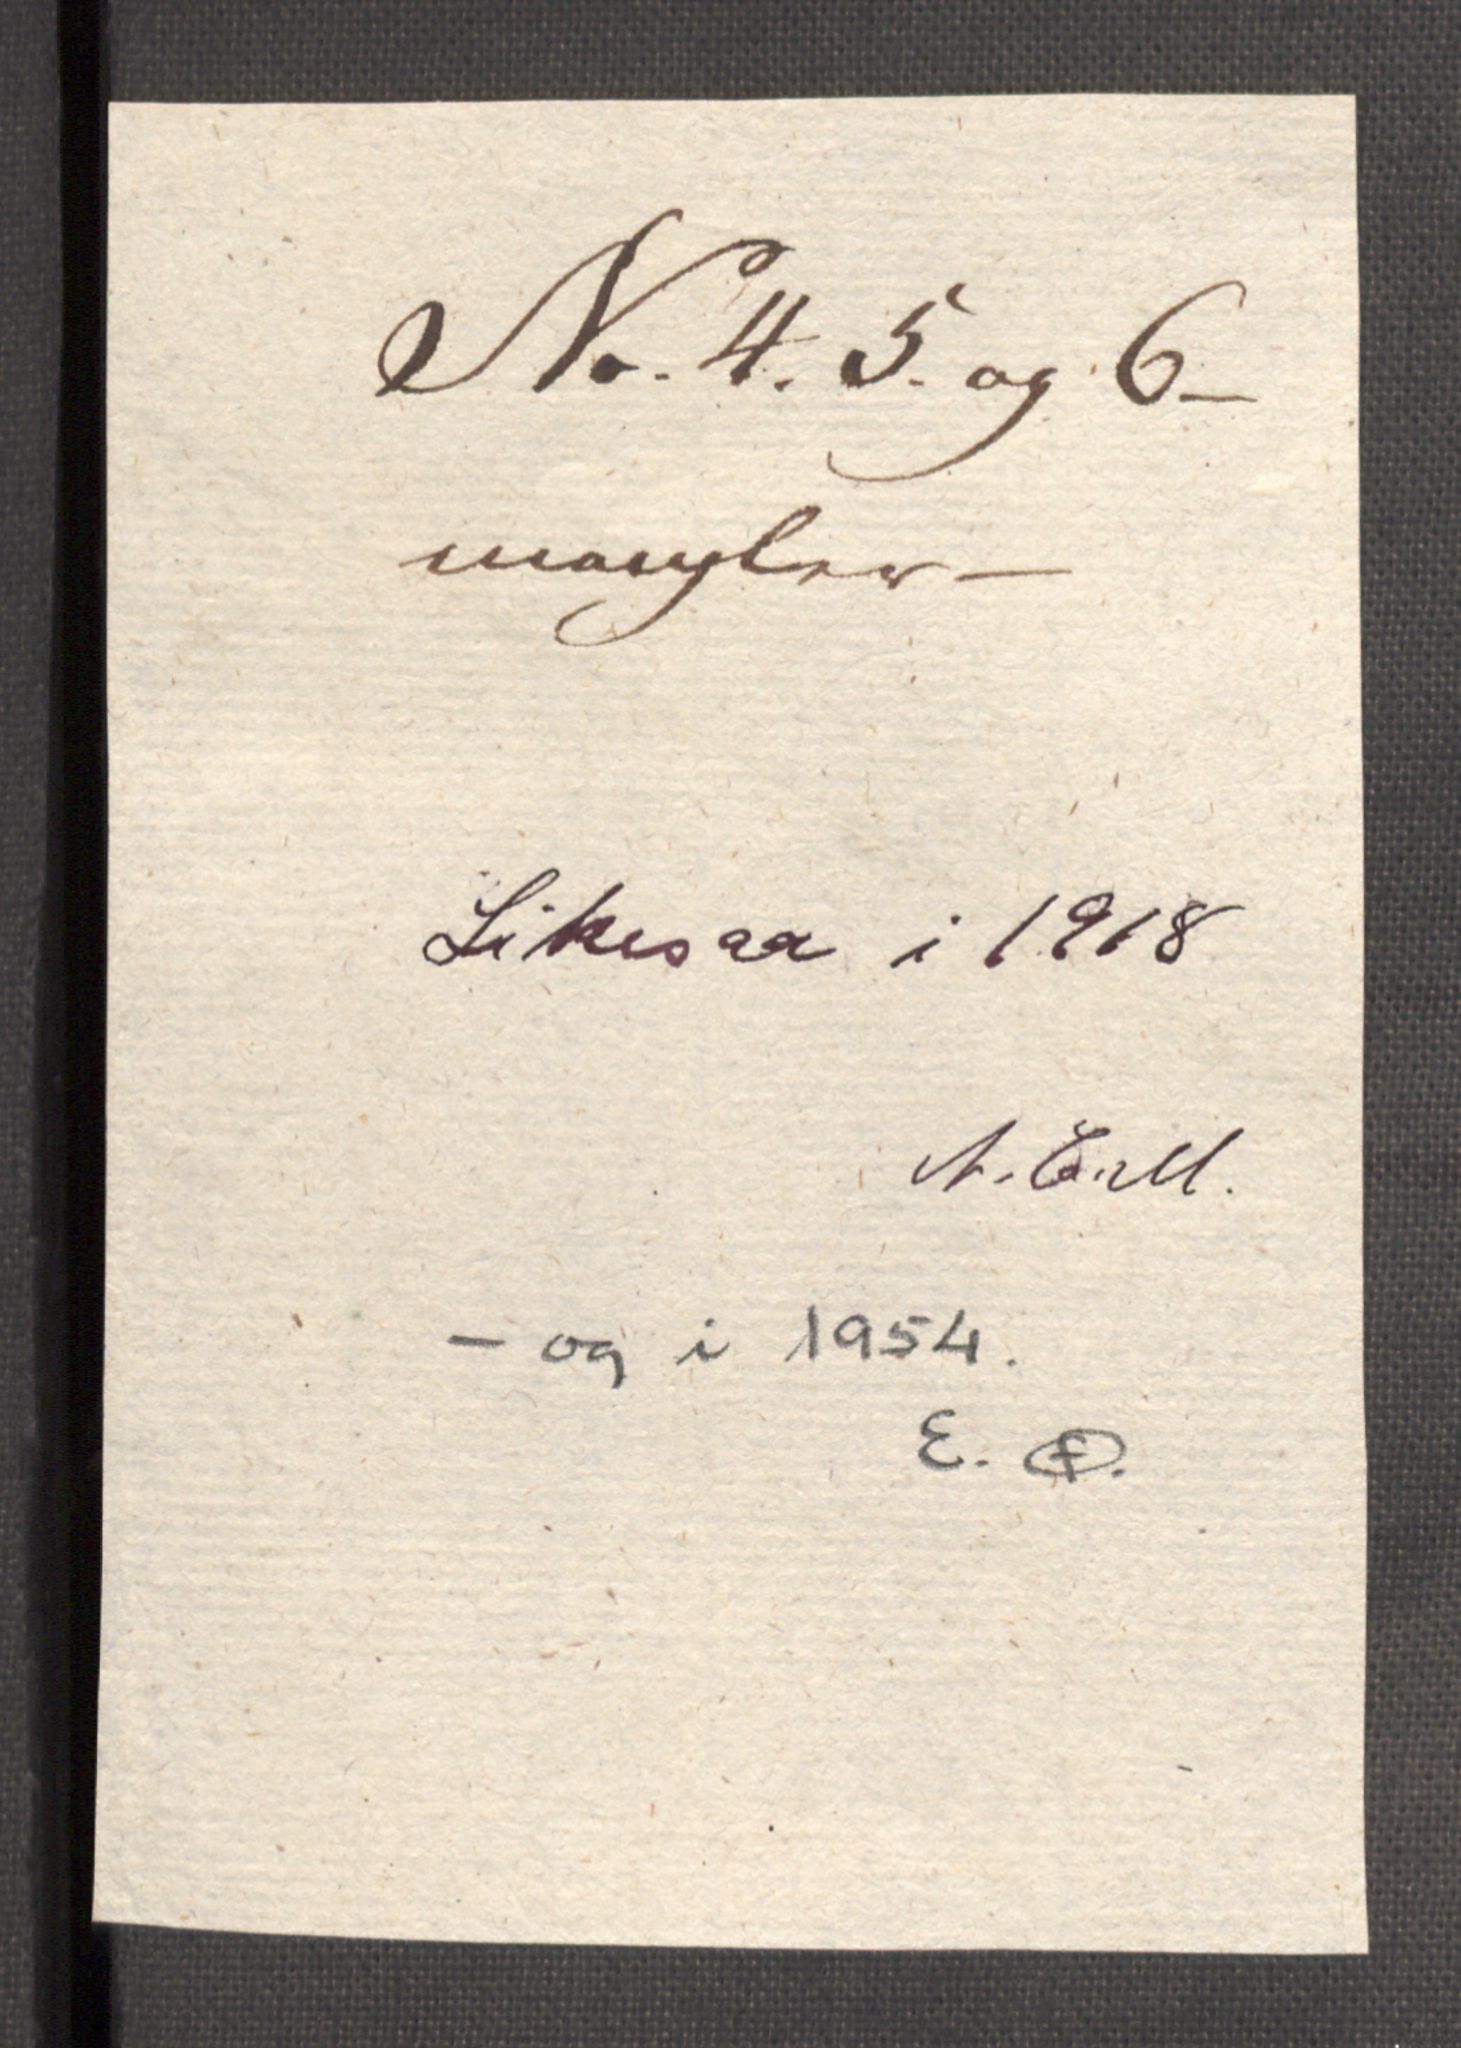 No. 4. 5. og 6 —
mangler —
Likesaa i 1918
A. E. M.
— og i 1954.
E.